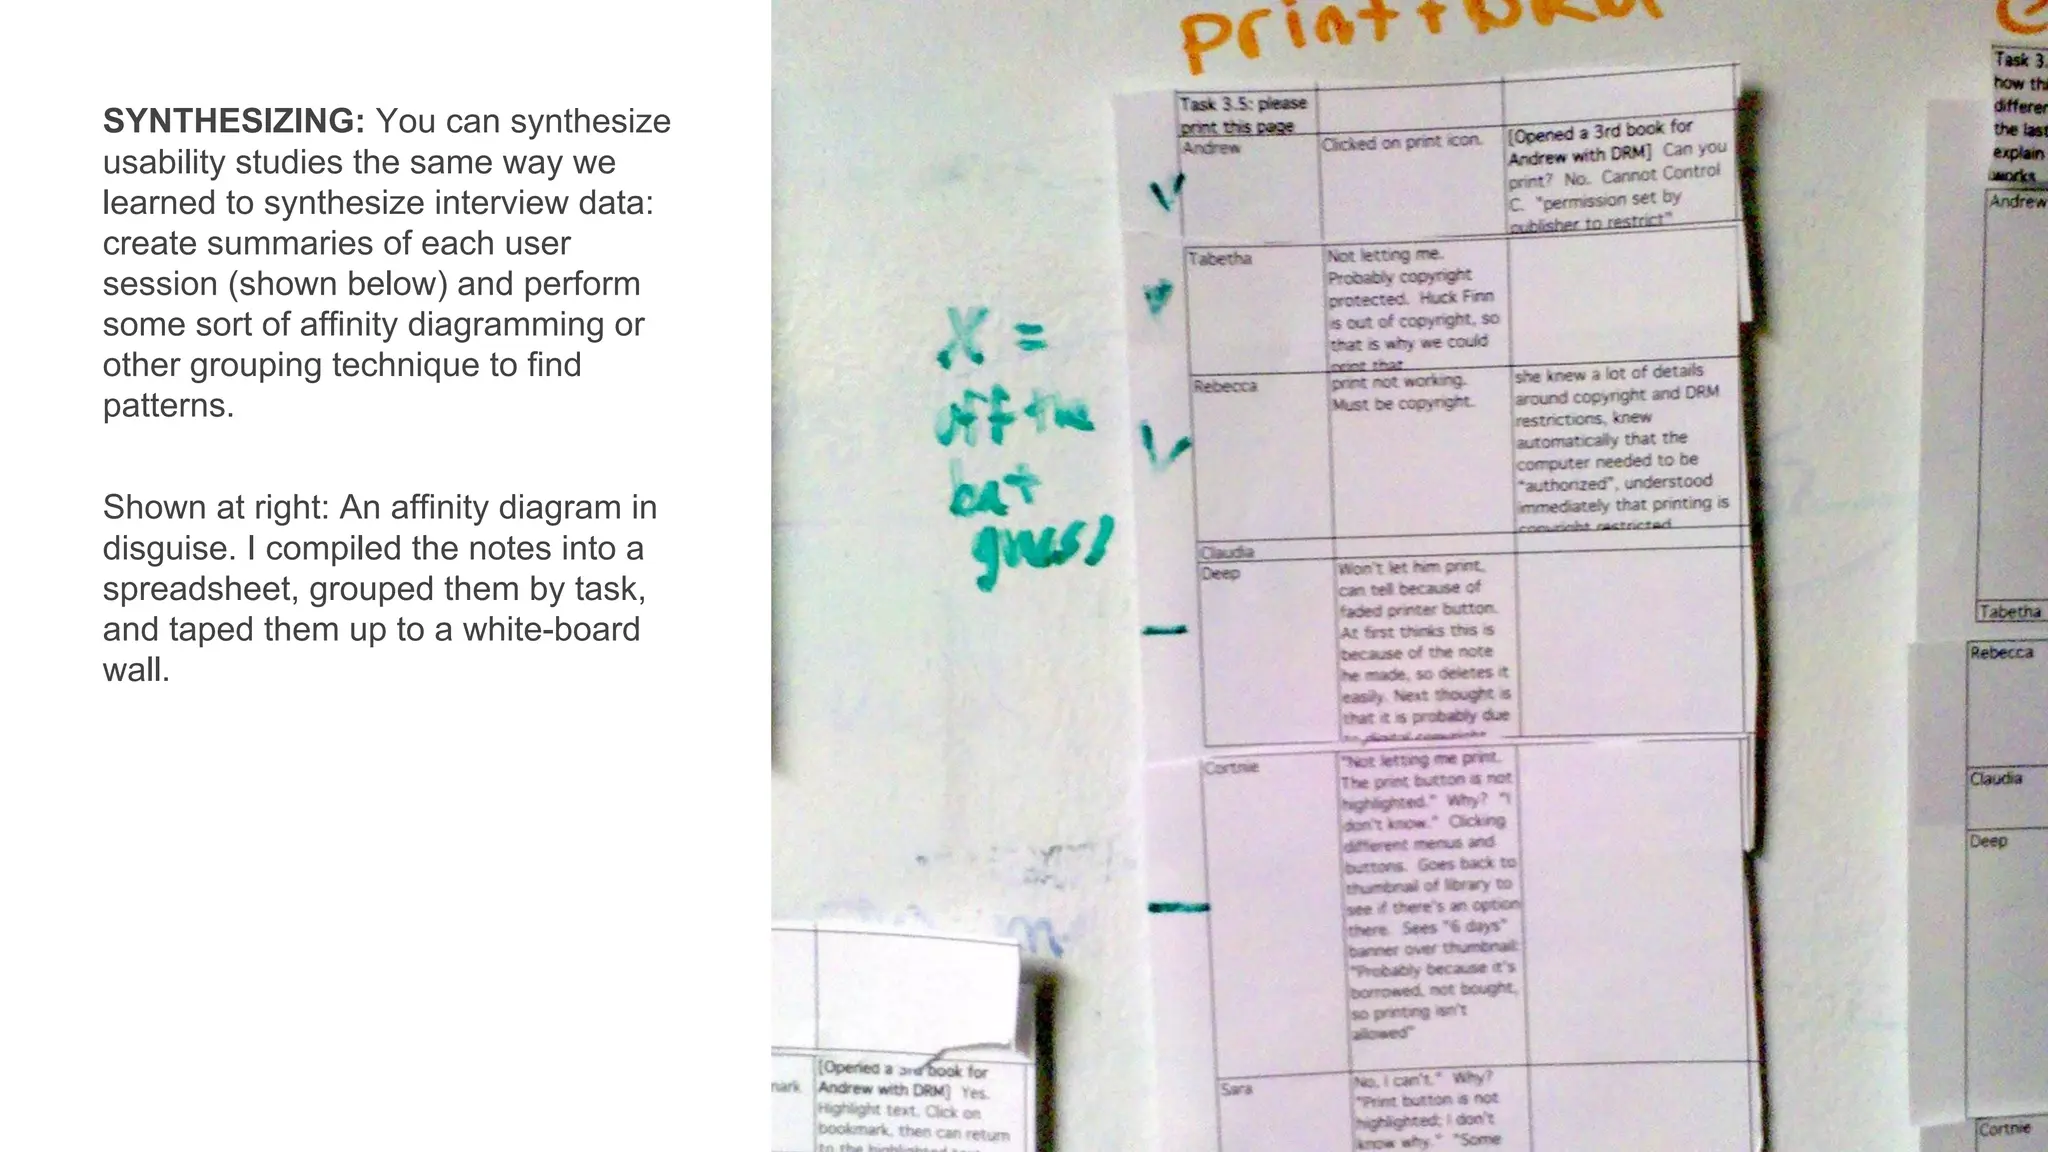 SYNTHESIZING: You can synthesize
usability studies the same way we
learned to synthesize interview data:
create summaries of each user
session (shown below) and perform
some sort of affinity diagramming or
other grouping technique to find
patterns.
Shown at right: An affinity diagram in
disguise. I compiled the notes into a
spreadsheet, grouped them by task,
and taped them up to a white-board
wall.
print + DRM
X =
off the
bat
guess
Task 3.5: please
print this page
Andrew
Clicked on print icon.
[Opened a 3rd book for
Andrew with DRM] Can you
print? No. Cannot Control
C. "permission set by
publisher to restrict"
Tabetha
Not letting me.
Probably copyright
protected. Huck Finn
is out of copyright, so
that is why we could
print that
Rebecca
print not working.
Must be copyright.
she knew a lot of details
around copyright and DRM
restrictions, knew
automatically that the
computer needed to be
"authorized", understood
immediately that printing is
copyright restricted
Claudia
Deep
Won't let him print,
can tell because of
faded printer button.
At first thinks this is
because of the note
he made, so deletes it
easily. Next thought is
that it is probably due
to digital copyright
Cortnie
"Not letting me print.
The print button is not
highlighted." Why? "I
don't know." Clicking
different menus and
buttons. Goes back to
thumbnail of library to
see if there's an option
there. Sees "6 days"
banner over thumbnail:
"Probably because it's
borrowed, not bought,
so printing isn't
allowed"
Sara
No, I can't." Why?
"Print button is not
highlighted; I don't
know why." "Some
[Opened a 3rd book for
Andrew with DRM] Yes.
Highlight text. Click on
bookmark, then can return
to the highlighted text
Task 3.
how
the last
explain
works
Andrew
Tabetha
Rebecca
Claudia
Deep
Cortnie